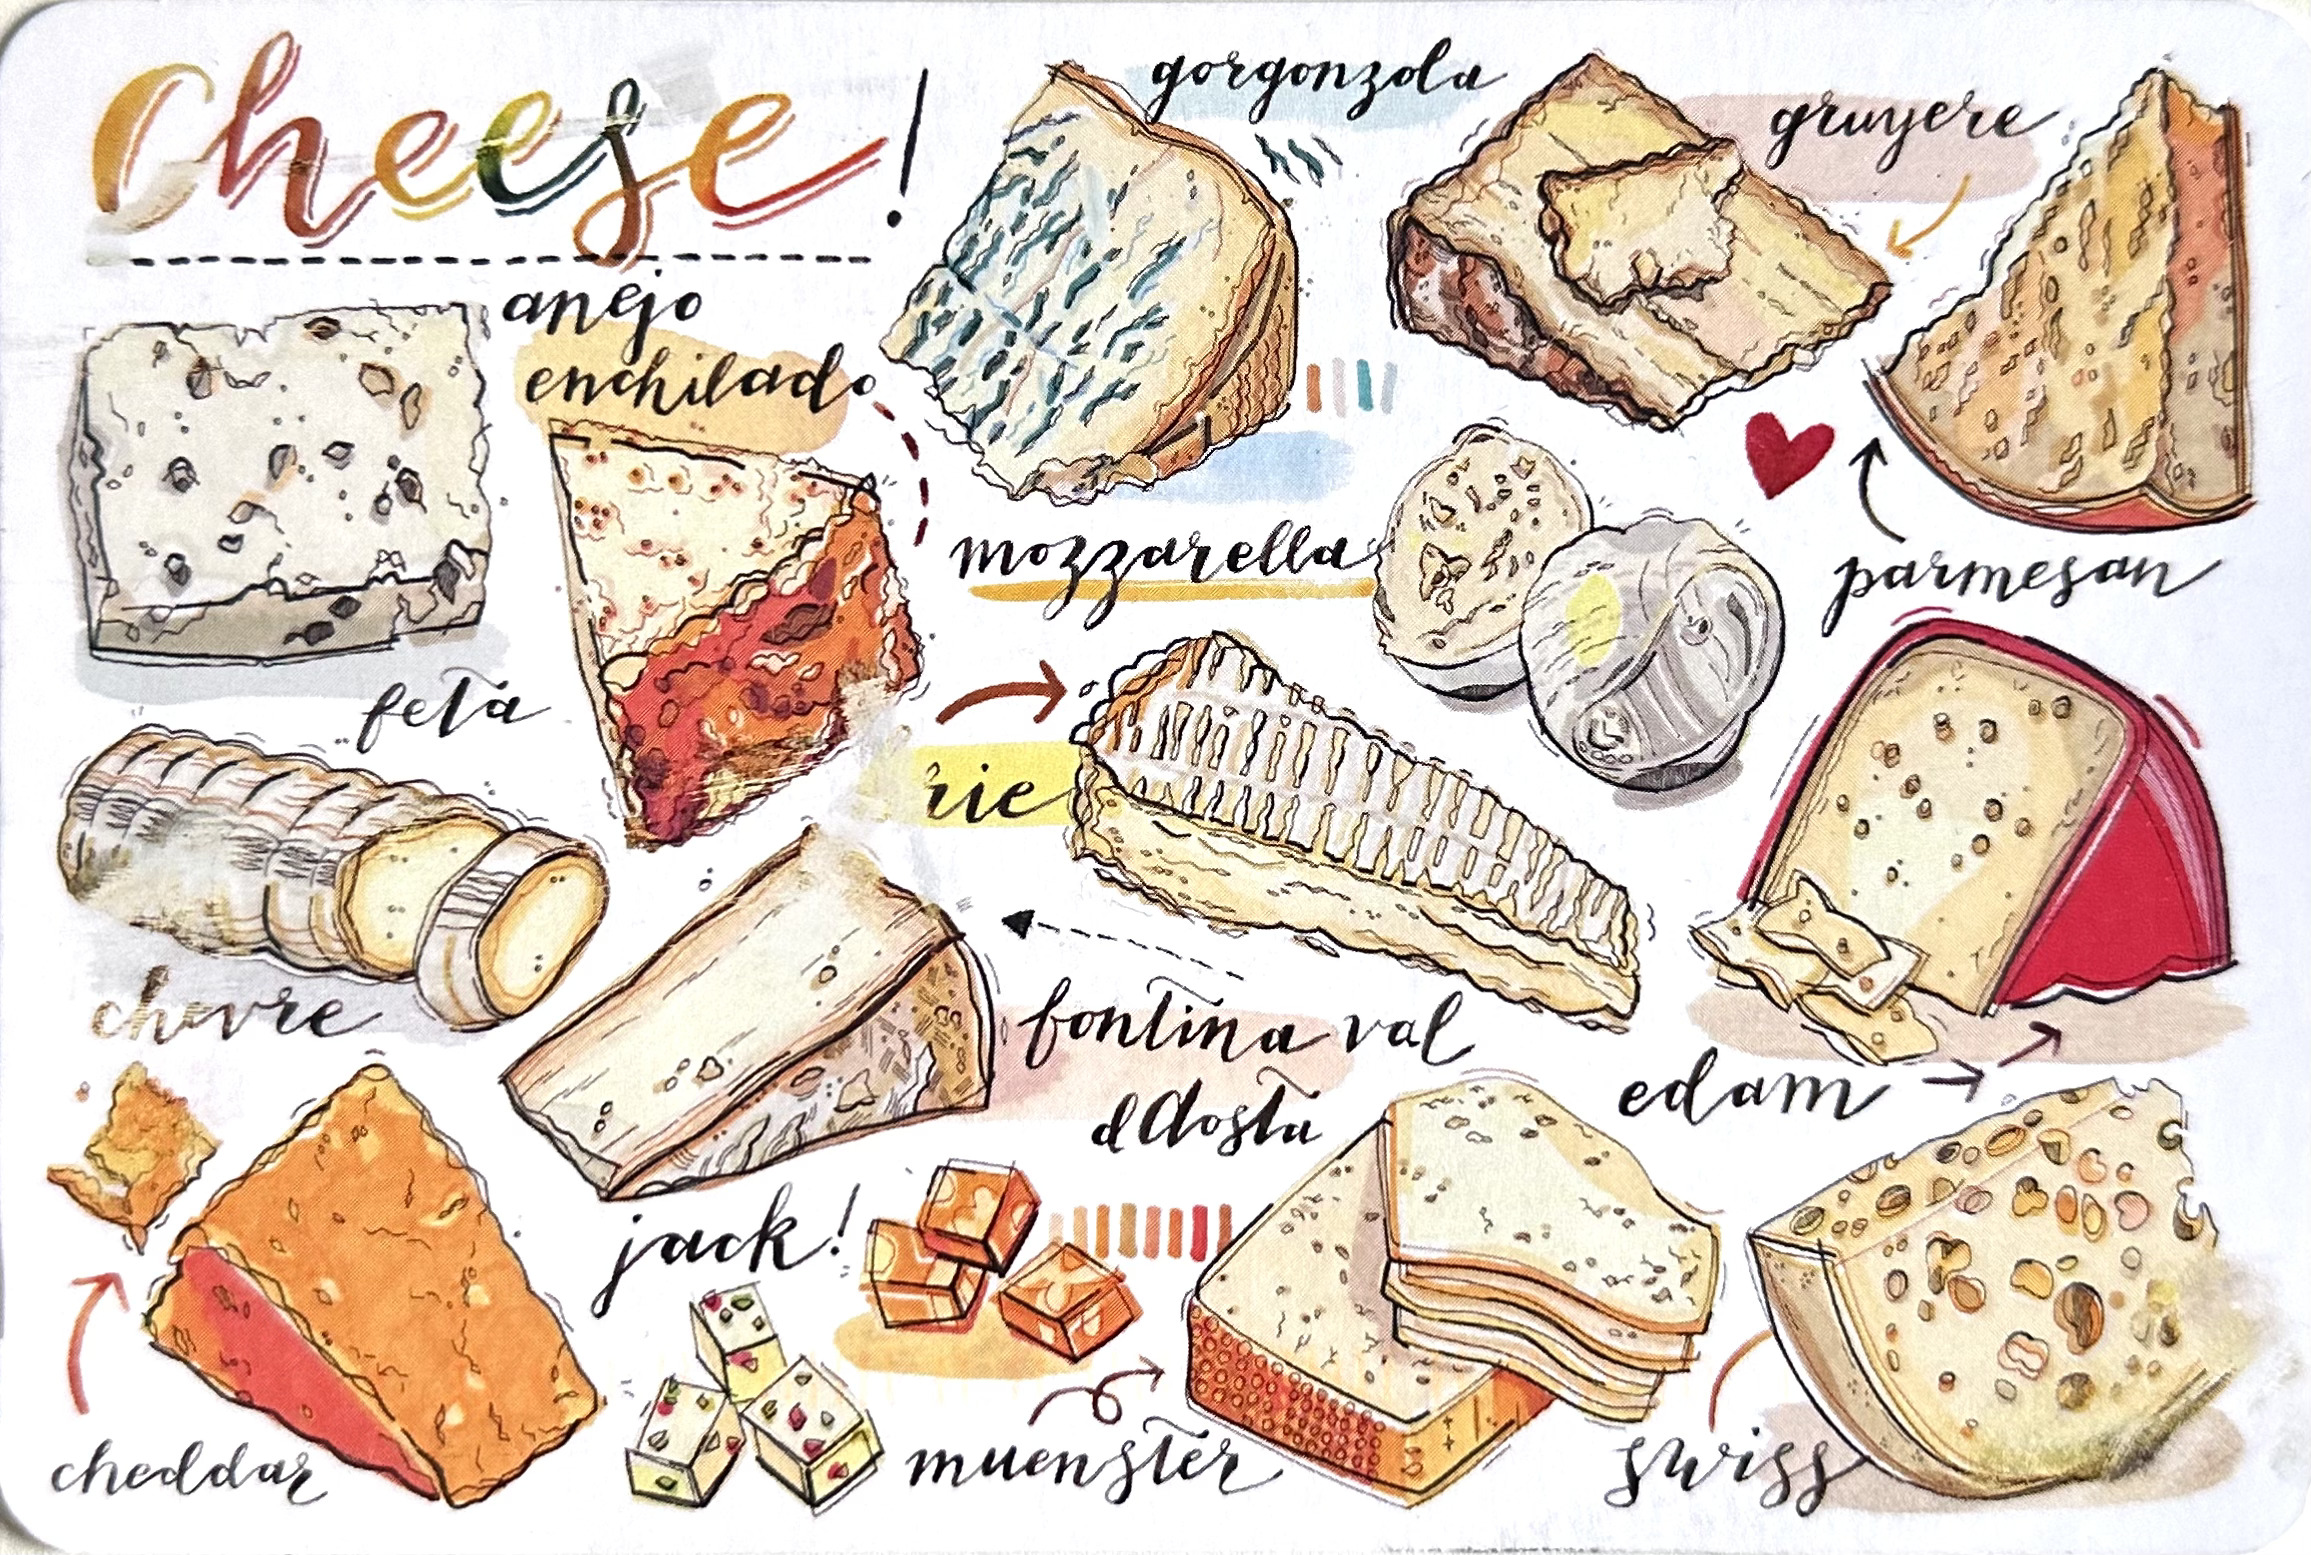 Cheese!
gorgonzola
gruyere
anejo
enchilado
mozzarella
parmesan
feta
rie
chevre
fontina val
d Aosta
edam
jack!
cheddar
muenster
swiss